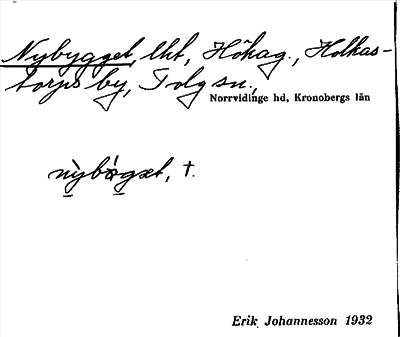 Nybygget, lht, Höhag., Holkas-
torps by, Tolg sn.,
Norrvidinge hd, Kronobergs län
t.
Erik Johannesson 1932